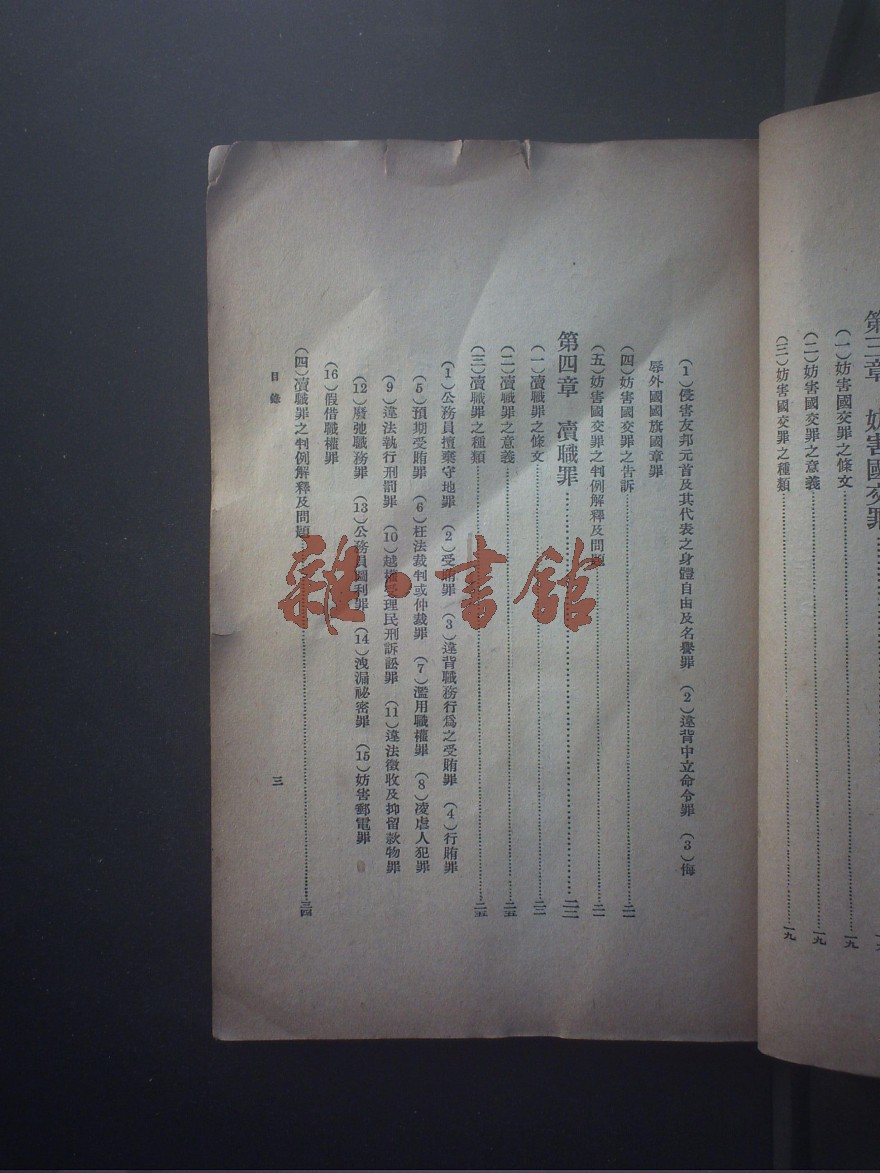 第三章　妨害國交罪
（一）妨害國交罪之條文……一九
（二）妨害國交罪之意義……一九
（三）妨害國交罪之種類……一九
（1）侵害友邦元首及其代表之身體自由及名譽罪　（2）違背中立命令罪　（3）侮
辱外國國旗國章罪
（四）妨害國交罪之告訴……二一
（五）妨害國交罪之判例解釋及問題……二一
第四章　瀆職罪……二三
（一）瀆職罪之條文……二三
（二）瀆職罪之意義……二五
（三）瀆職罪之種類……二五
（1）公務員擅棄守地罪　（2）受賄罪　（3）違背職務行爲之受賄罪　（4）行賄罪
（5）預期受賄罪　（6）枉法裁判或仲裁罪　（7）濫用職權罪　（8）凌虐人犯罪
（9）違法執行刑罰罪　（10）越權受理民刑訴訟罪　（11）違法徵收及抑留款物罪
（12）廢弛職務罪　（13）公務員圖利罪　（14）洩漏祕密罪　（15）妨害郵電罪
（16）假借職權罪
（四）瀆職罪之判例解釋及問題……三四
目錄
三
雜·書館